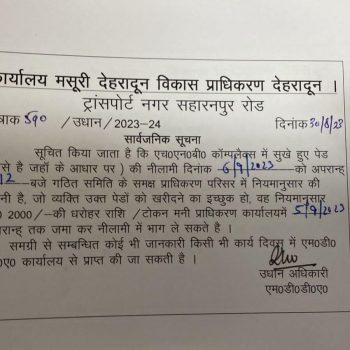 कार्यालय मसूरी देहरादून विकास प्राधिकरण देहरादून ।
ट्रांसपोर्ट नगर सहारनपुर रोड
षांक 590 /उधान/2023-24 दिनांक 30/8/23
सार्वजनिक सूचना
सूचित किया जाता है कि एच0एन0बी0 कॉम्पलैक्स में सुखे हुए पेड
से है जहॉं के आधार पर ) की नीलामी दिनांक 6/9/2023 को अपरान्ह
12 बजे गठित समिति के समक्ष प्राधिकरण परिसर में नियमानुसार की
नी है, जो व्यक्ति उक्त पेडों को खरीदने का इच्छुक हो, वह नियमानुसार
0 2000/—की धरोहर राशि /टोकन मनी प्राधिकरण कार्यालयमें 5/9/2023
परान्ह तक जमा कर नीलामी में भाग ले सकते है ।
समग्री से सम्बन्धित कोई भी जानकारी किसी भी कार्य दिवस में एम0डी0
0ए0 कार्यालय से प्राप्त की जा सकती है ।
उधान अधिकारी
एम0डी0डी0ए0